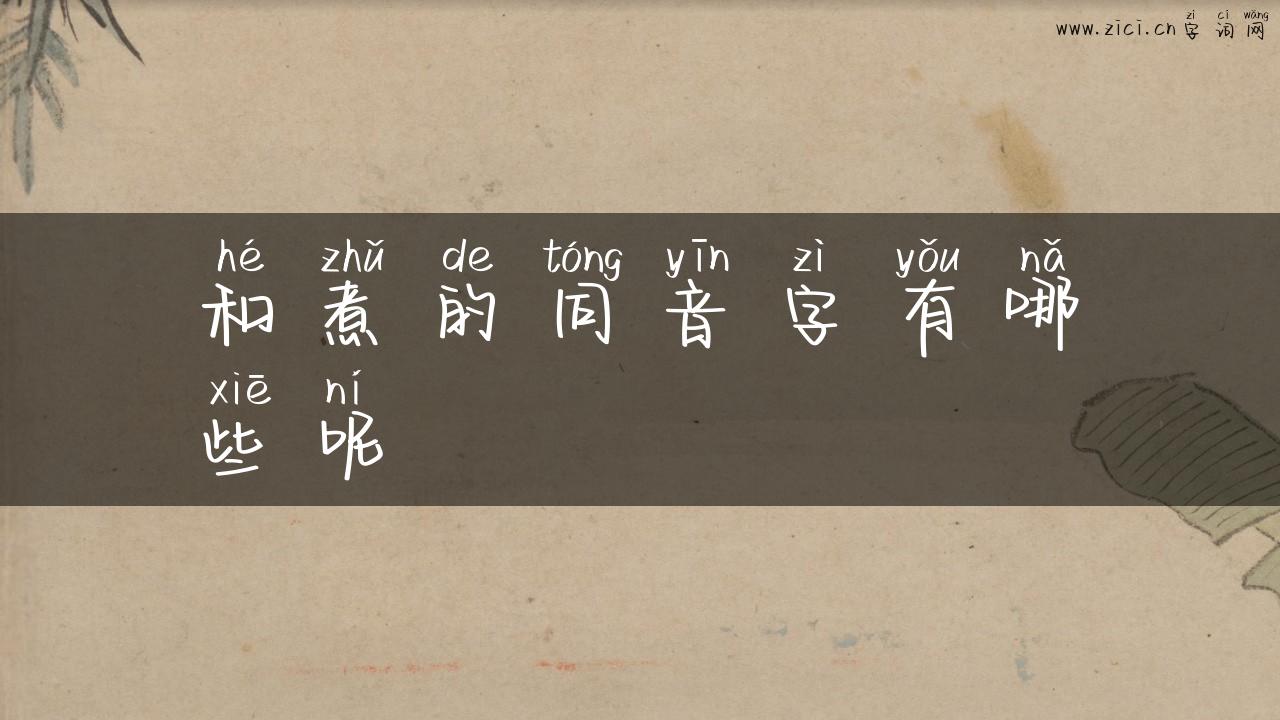 zì cí wǎng
www.zici.cn 字词网
hé zhǔ de tóng yīn zì yǒu nǎ
和煮的同音字有哪
xiē ní
些呢